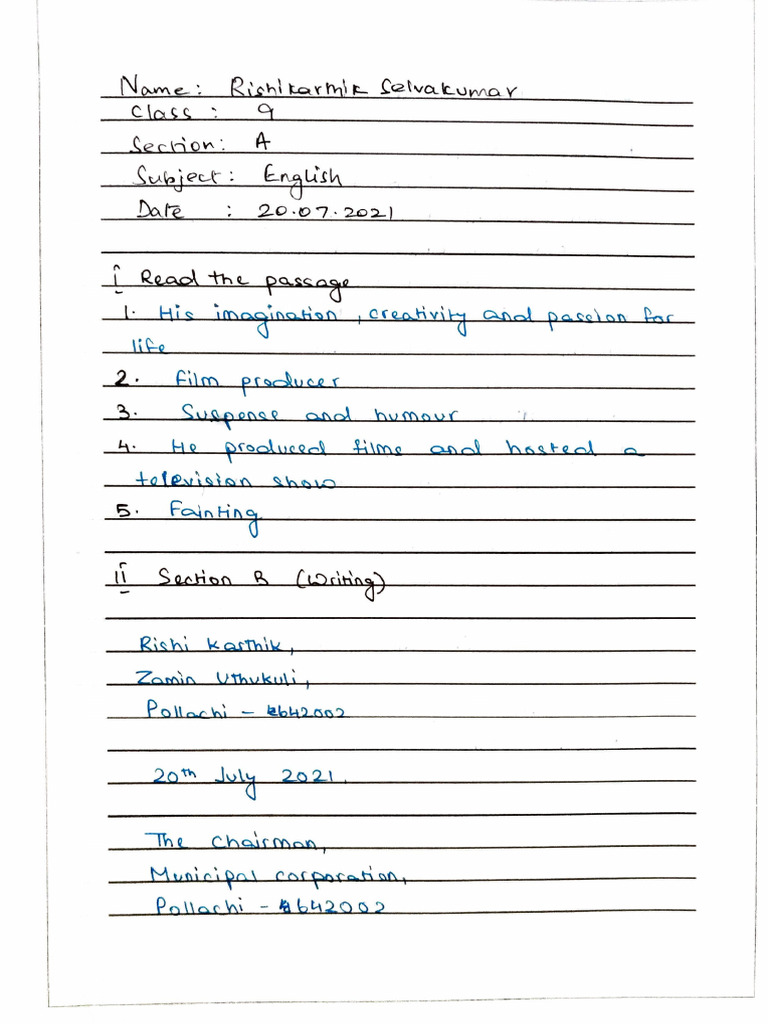 Name: Rishikarmik Selvakumar
Class : 9
Section: A
Subject: English
Date : 20.07.2021
I Read the passage
1. His imagination, creativity and passion for
life
2. Film producer
3. Suspense and humour
4. He produced films and hosted a
television show
5. Fainting
II Section B (Writing)
Rishi Karthik,
Zamin Uthukuli,
Pollachi - 642002
20th July 2021.
The Chairman,
Municipal corporation,
Pollachi - 642002